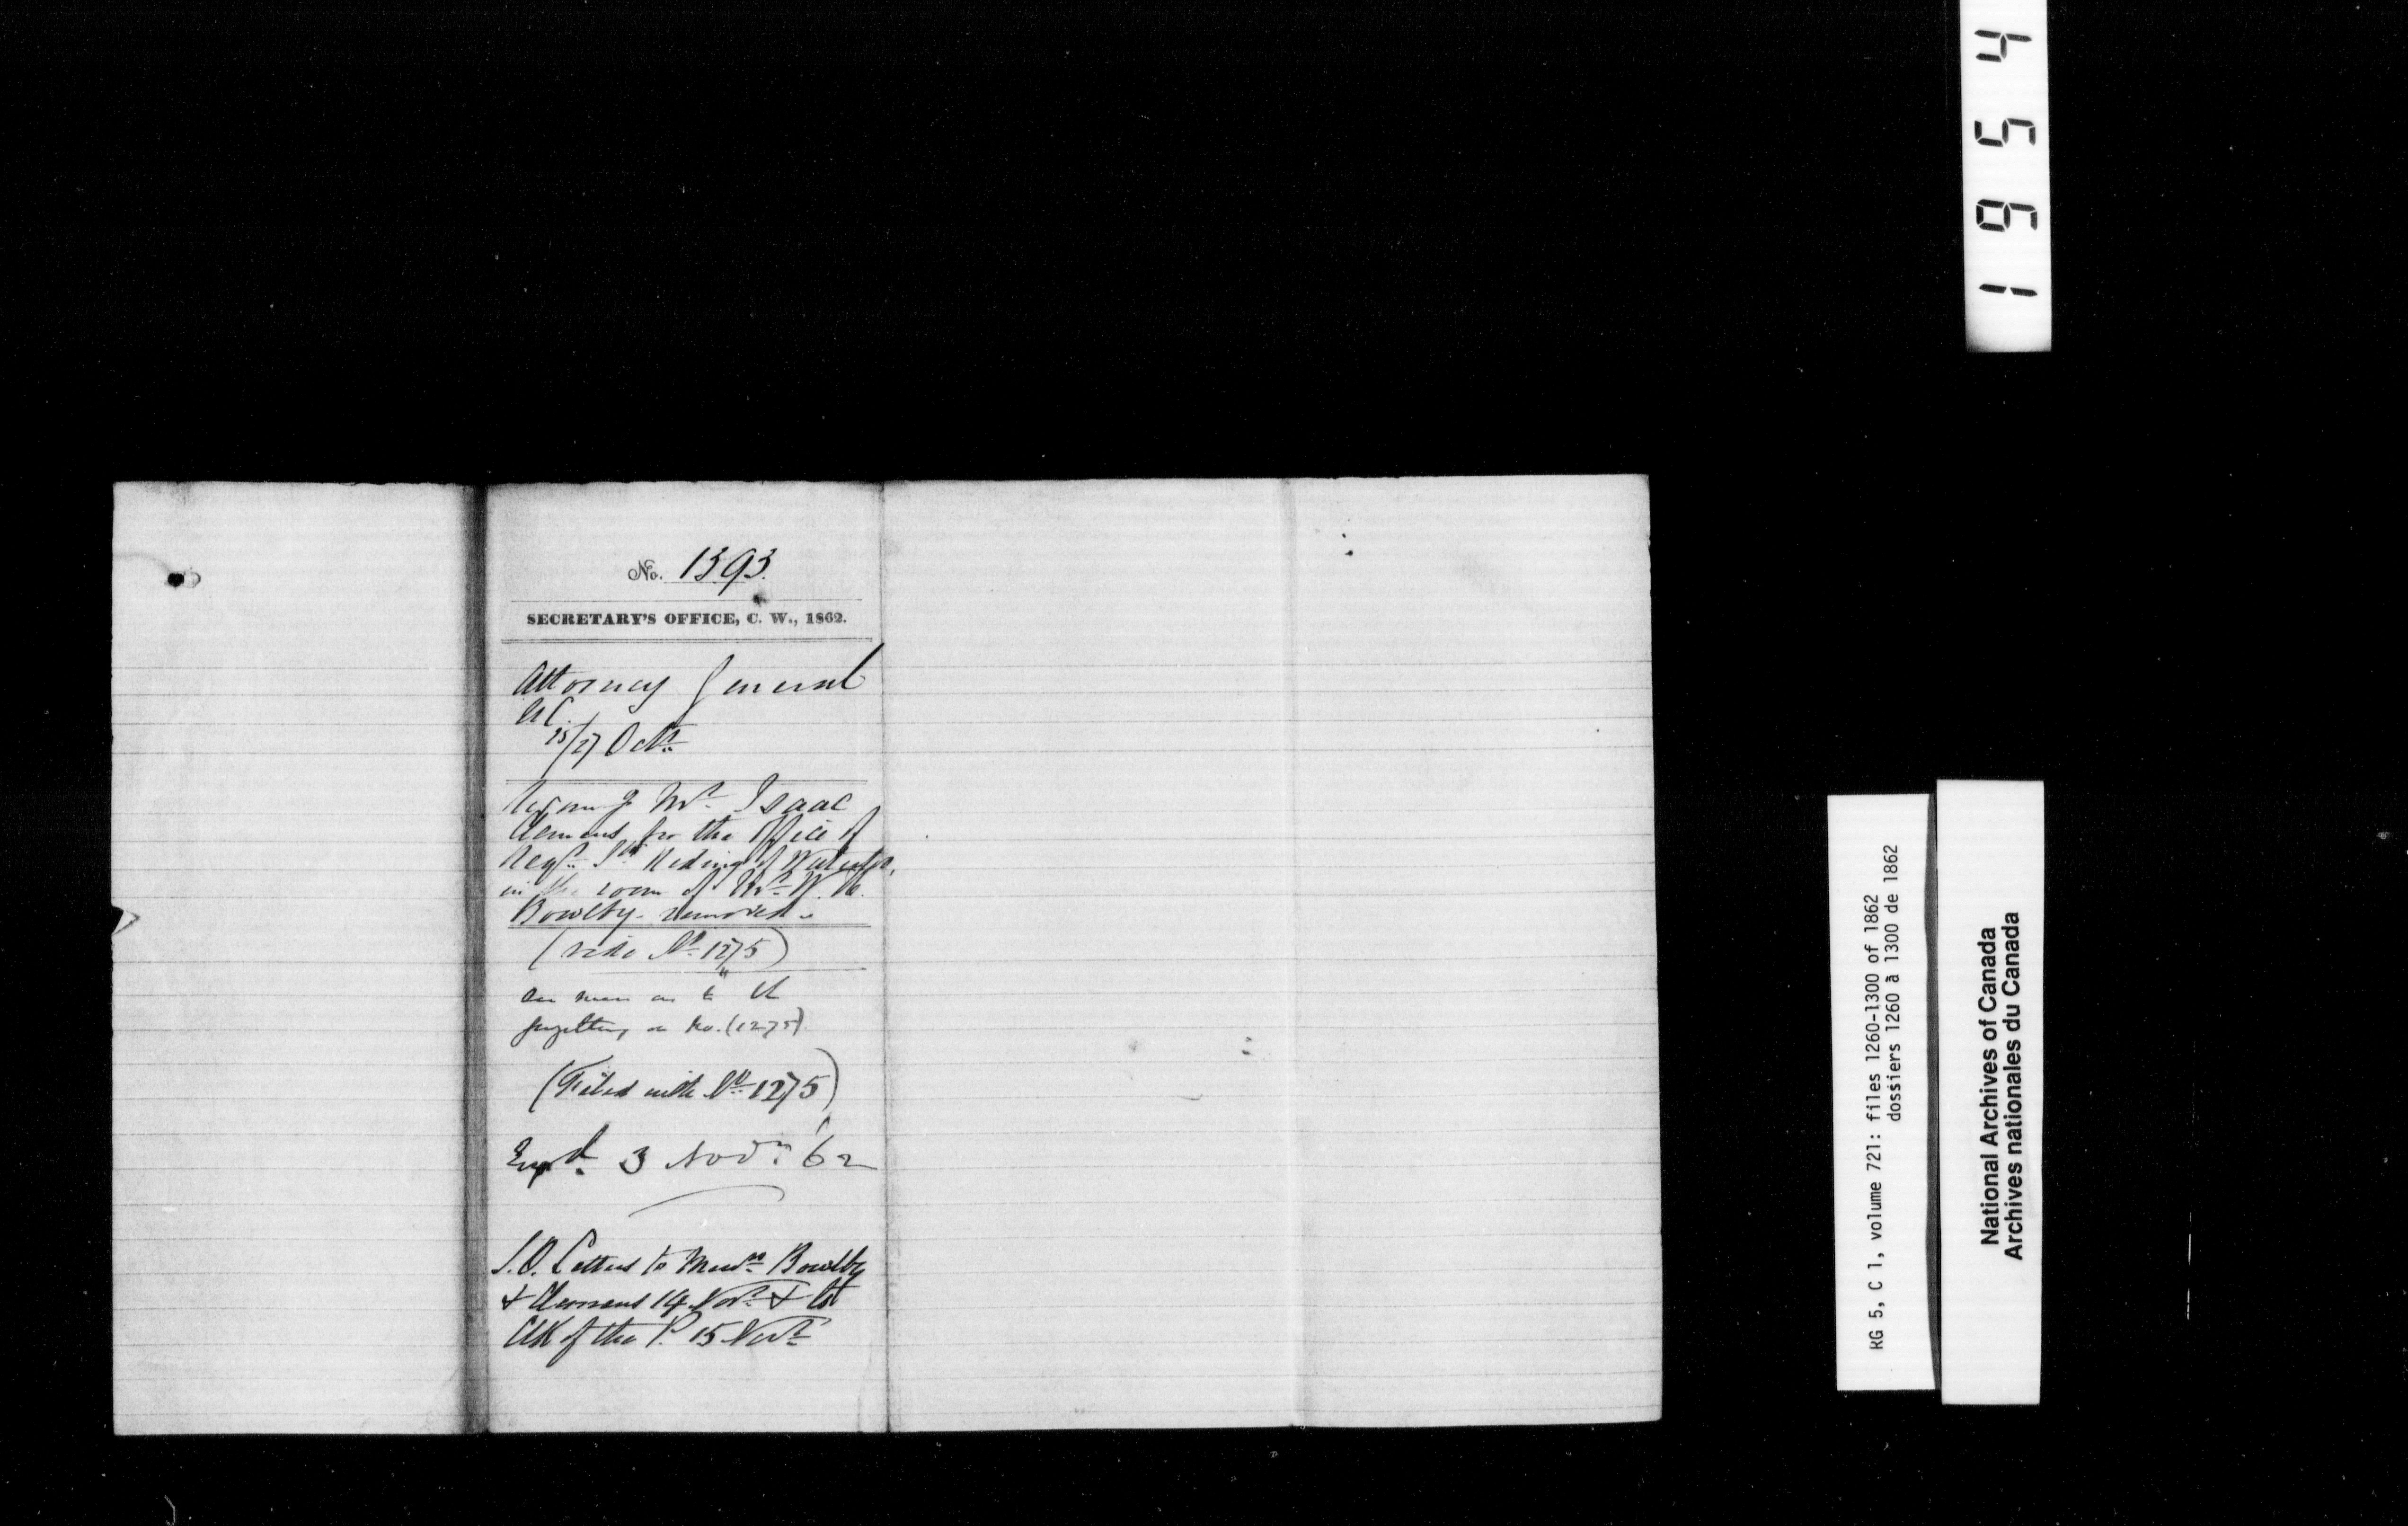 1954
No. 1393.
SECRETARY'S OFFICE, C. W., 1862.
Attorney General
U C.
25/27 Octr.
Recomg Mr. Isaac
Clemens for the Office of
Regr. Sth Riding of Waterloo,
in the room of Mr. W. H.
Bowlby removed.
(vide No. 1275)
see memo as to
gazetting on No. (1275)
(Filed with No. 1275)
3 Novr. 62
S.O. Letters to Messrs. Bowlby
& Clemens 14 Novr. & to
Clk of the P. 15 Novr.
RG 5, C 1, volume 721: files 1260-1300 of 1862
dossiers 1260 à 1300 de 1862
National Archives of Canada
Archives nationales du Canada